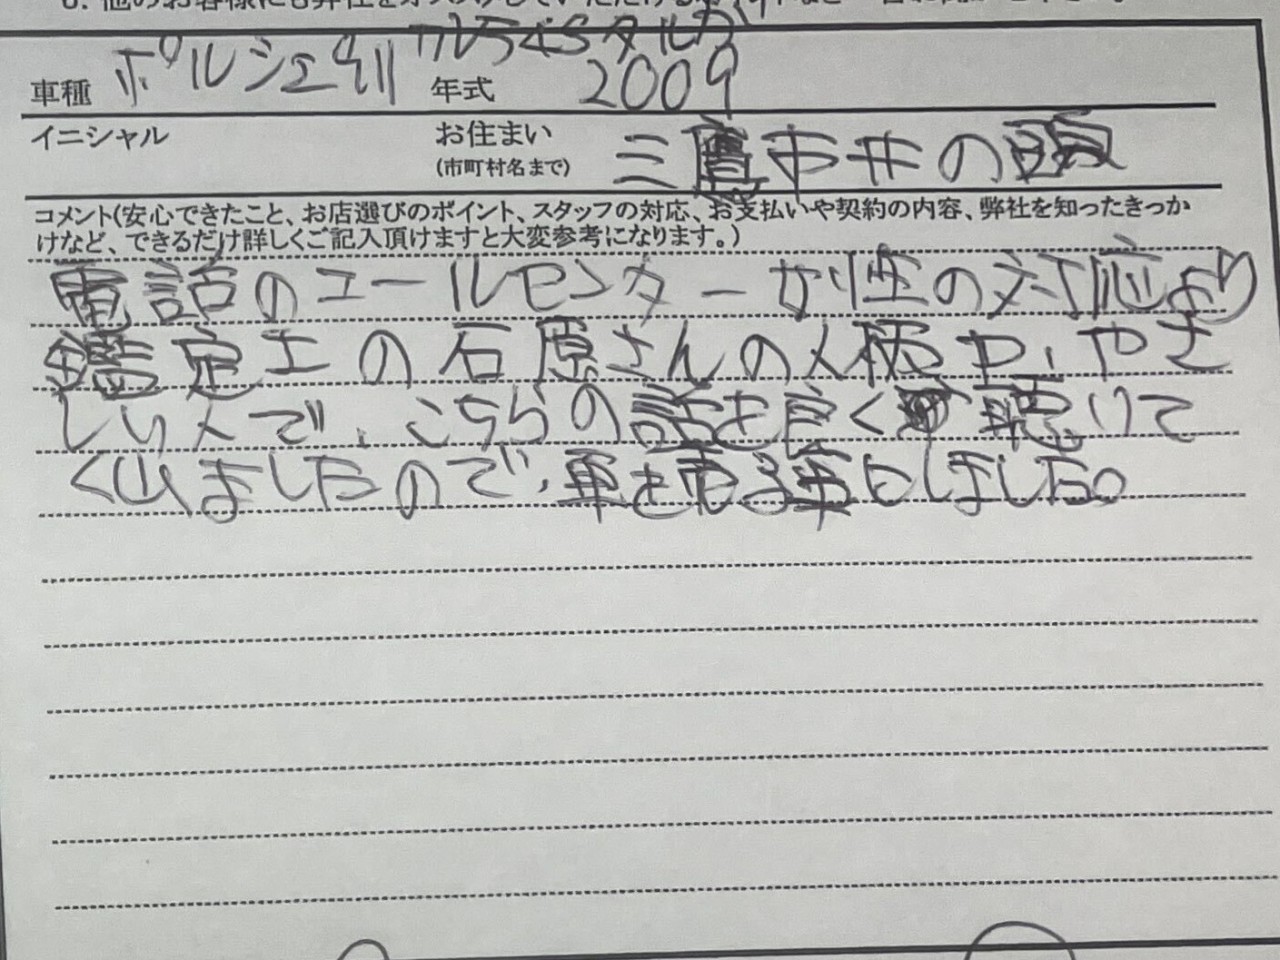 車種 ポルシェ911 カレラ4Sタルガ 年式 2009
イニシャル お住まい (市町村名まで) 三鷹市井の頭
コメント(安心できたこと、お店選びのポイント、スタッフの対応、お支払いや契約の内容、弊社を知ったきっか
けなど、できるだけ詳しくご記入頂けますと大変参考になります。)
電話のコールセンター女性の対応より
鑑定士の石原さんの人柄や、やさ
しい人で、こちらの話を良く聴いて
くれましたので、車を売る事にしました。